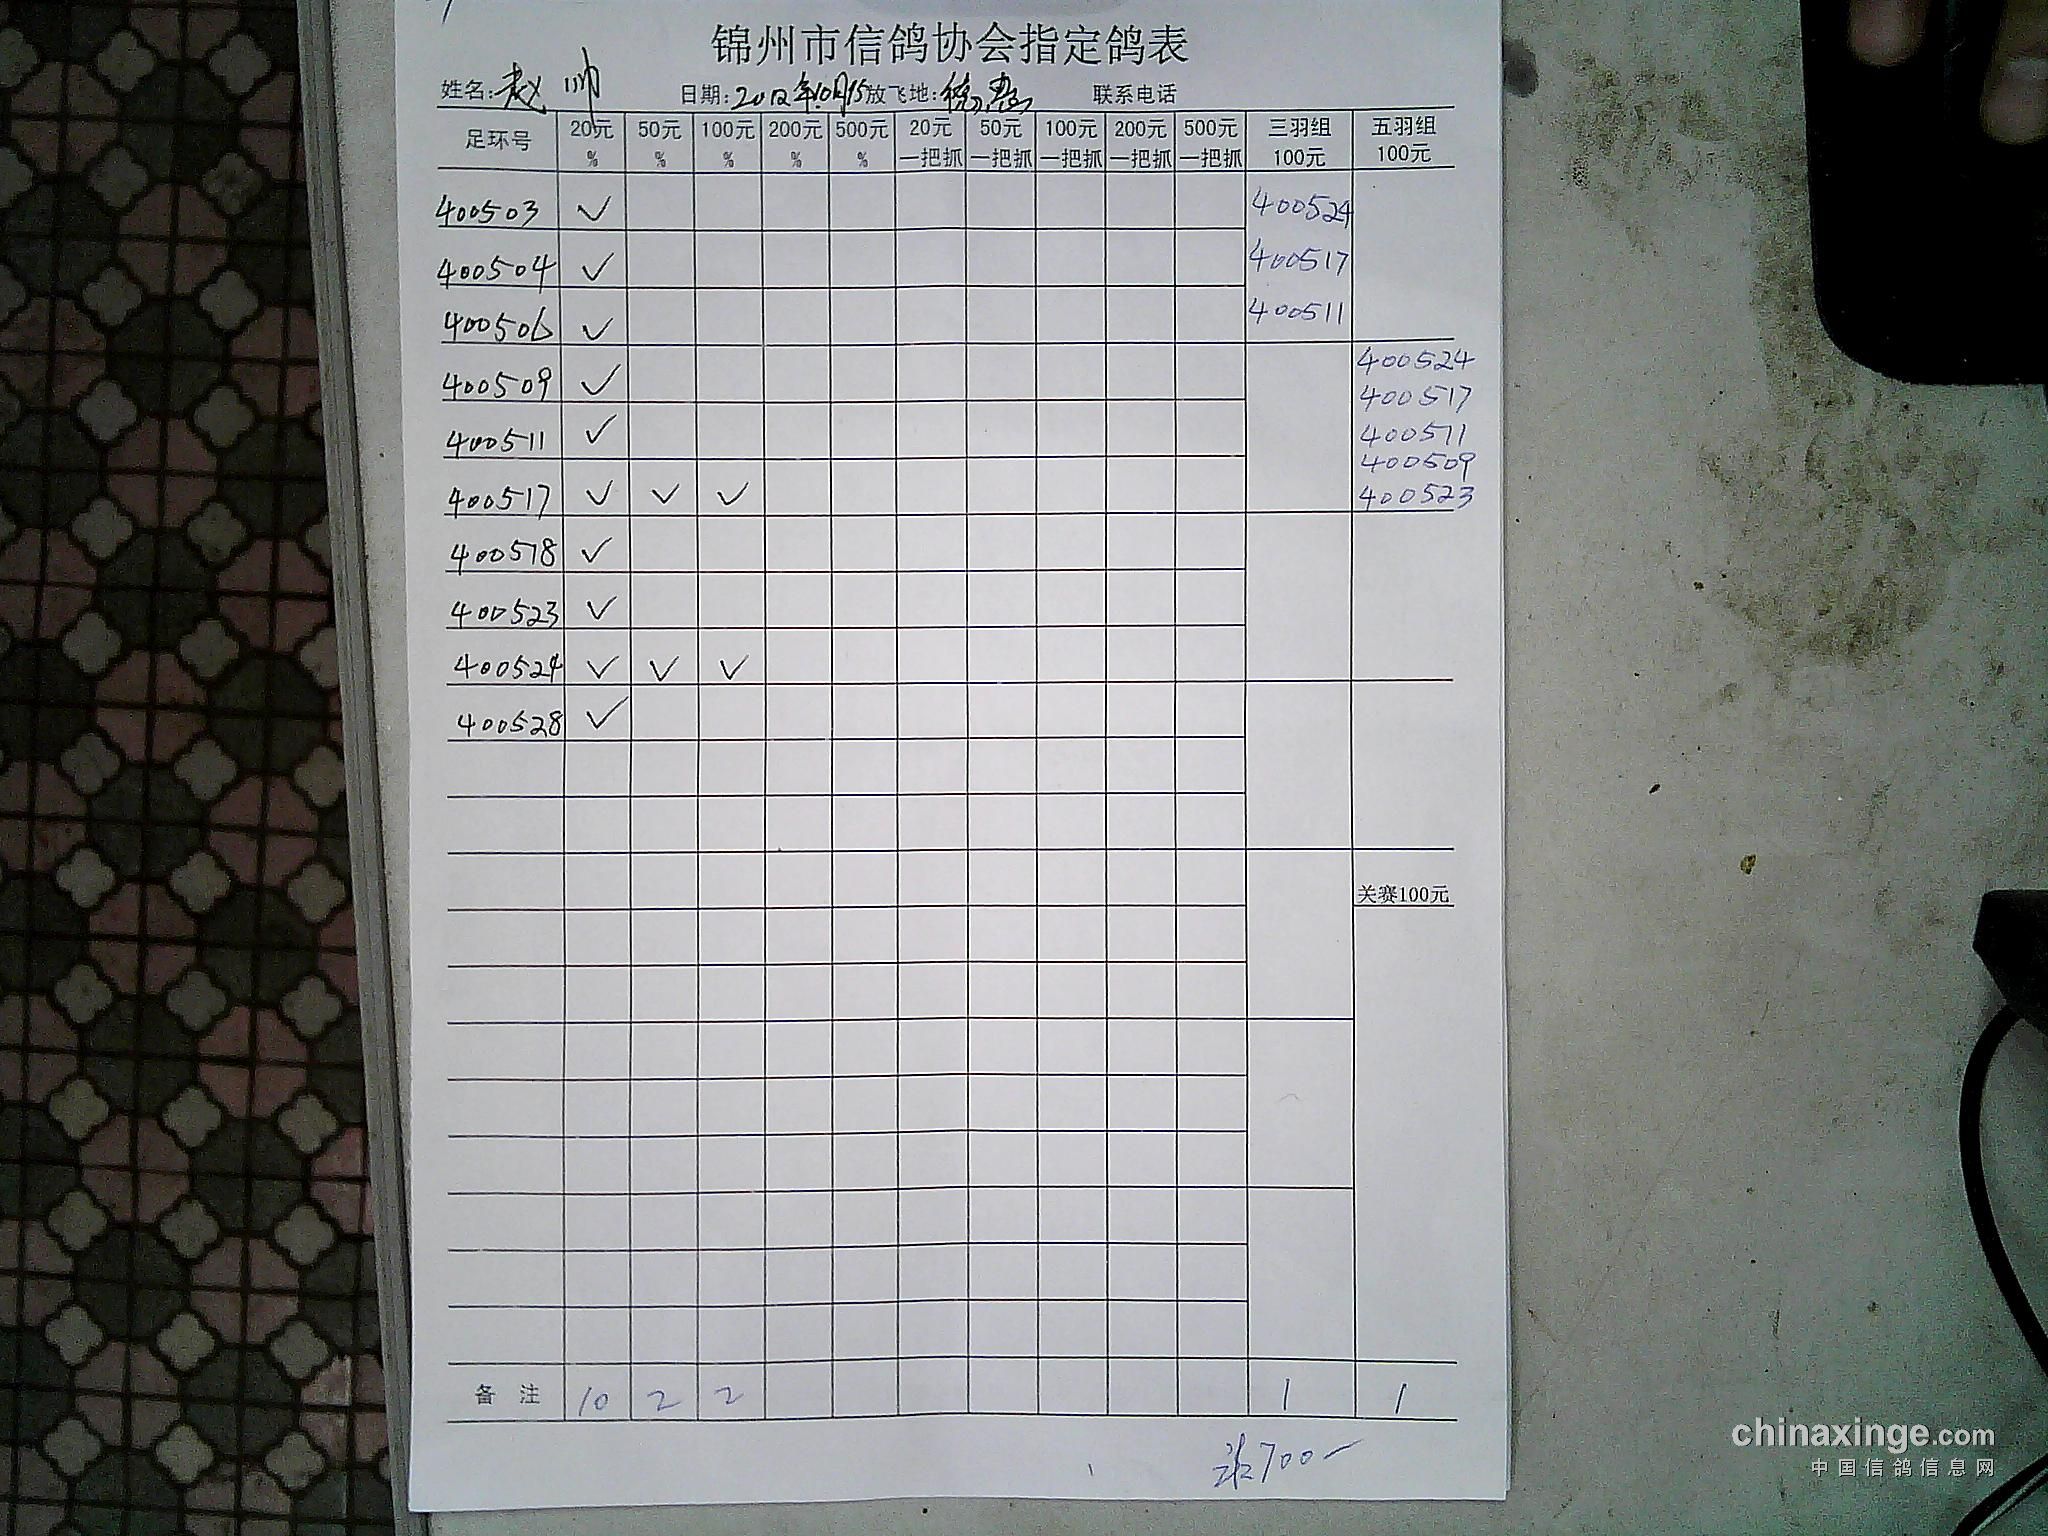 锦州市信鸽协会指定鸽表
姓名:赵帅 日期:2012年10月15 放飞地: 联系电话
足环号 20元% 50元% 100元% 200元% 500元% 20元一把抓 50元一把抓 100元一把抓 200元一把抓 500元一把抓 三羽组100元 五羽组100元
400503 ✓ 400524
400504 ✓ 400517
400506 ✓ 400511
400509 ✓ 400524
400517
400511 ✓ 400511
400509
400517 ✓ ✓ ✓ 400523
400518 ✓
400523 ✓
400524 ✓ ✓ ✓
400528 ✓
关赛100元
备 注 10 2 2 1 1
700
chinaxinge.com
中国信鸽信息网